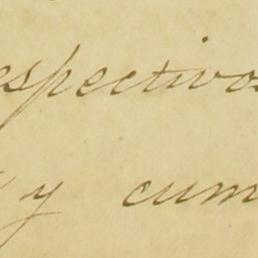 espectivos
y cum